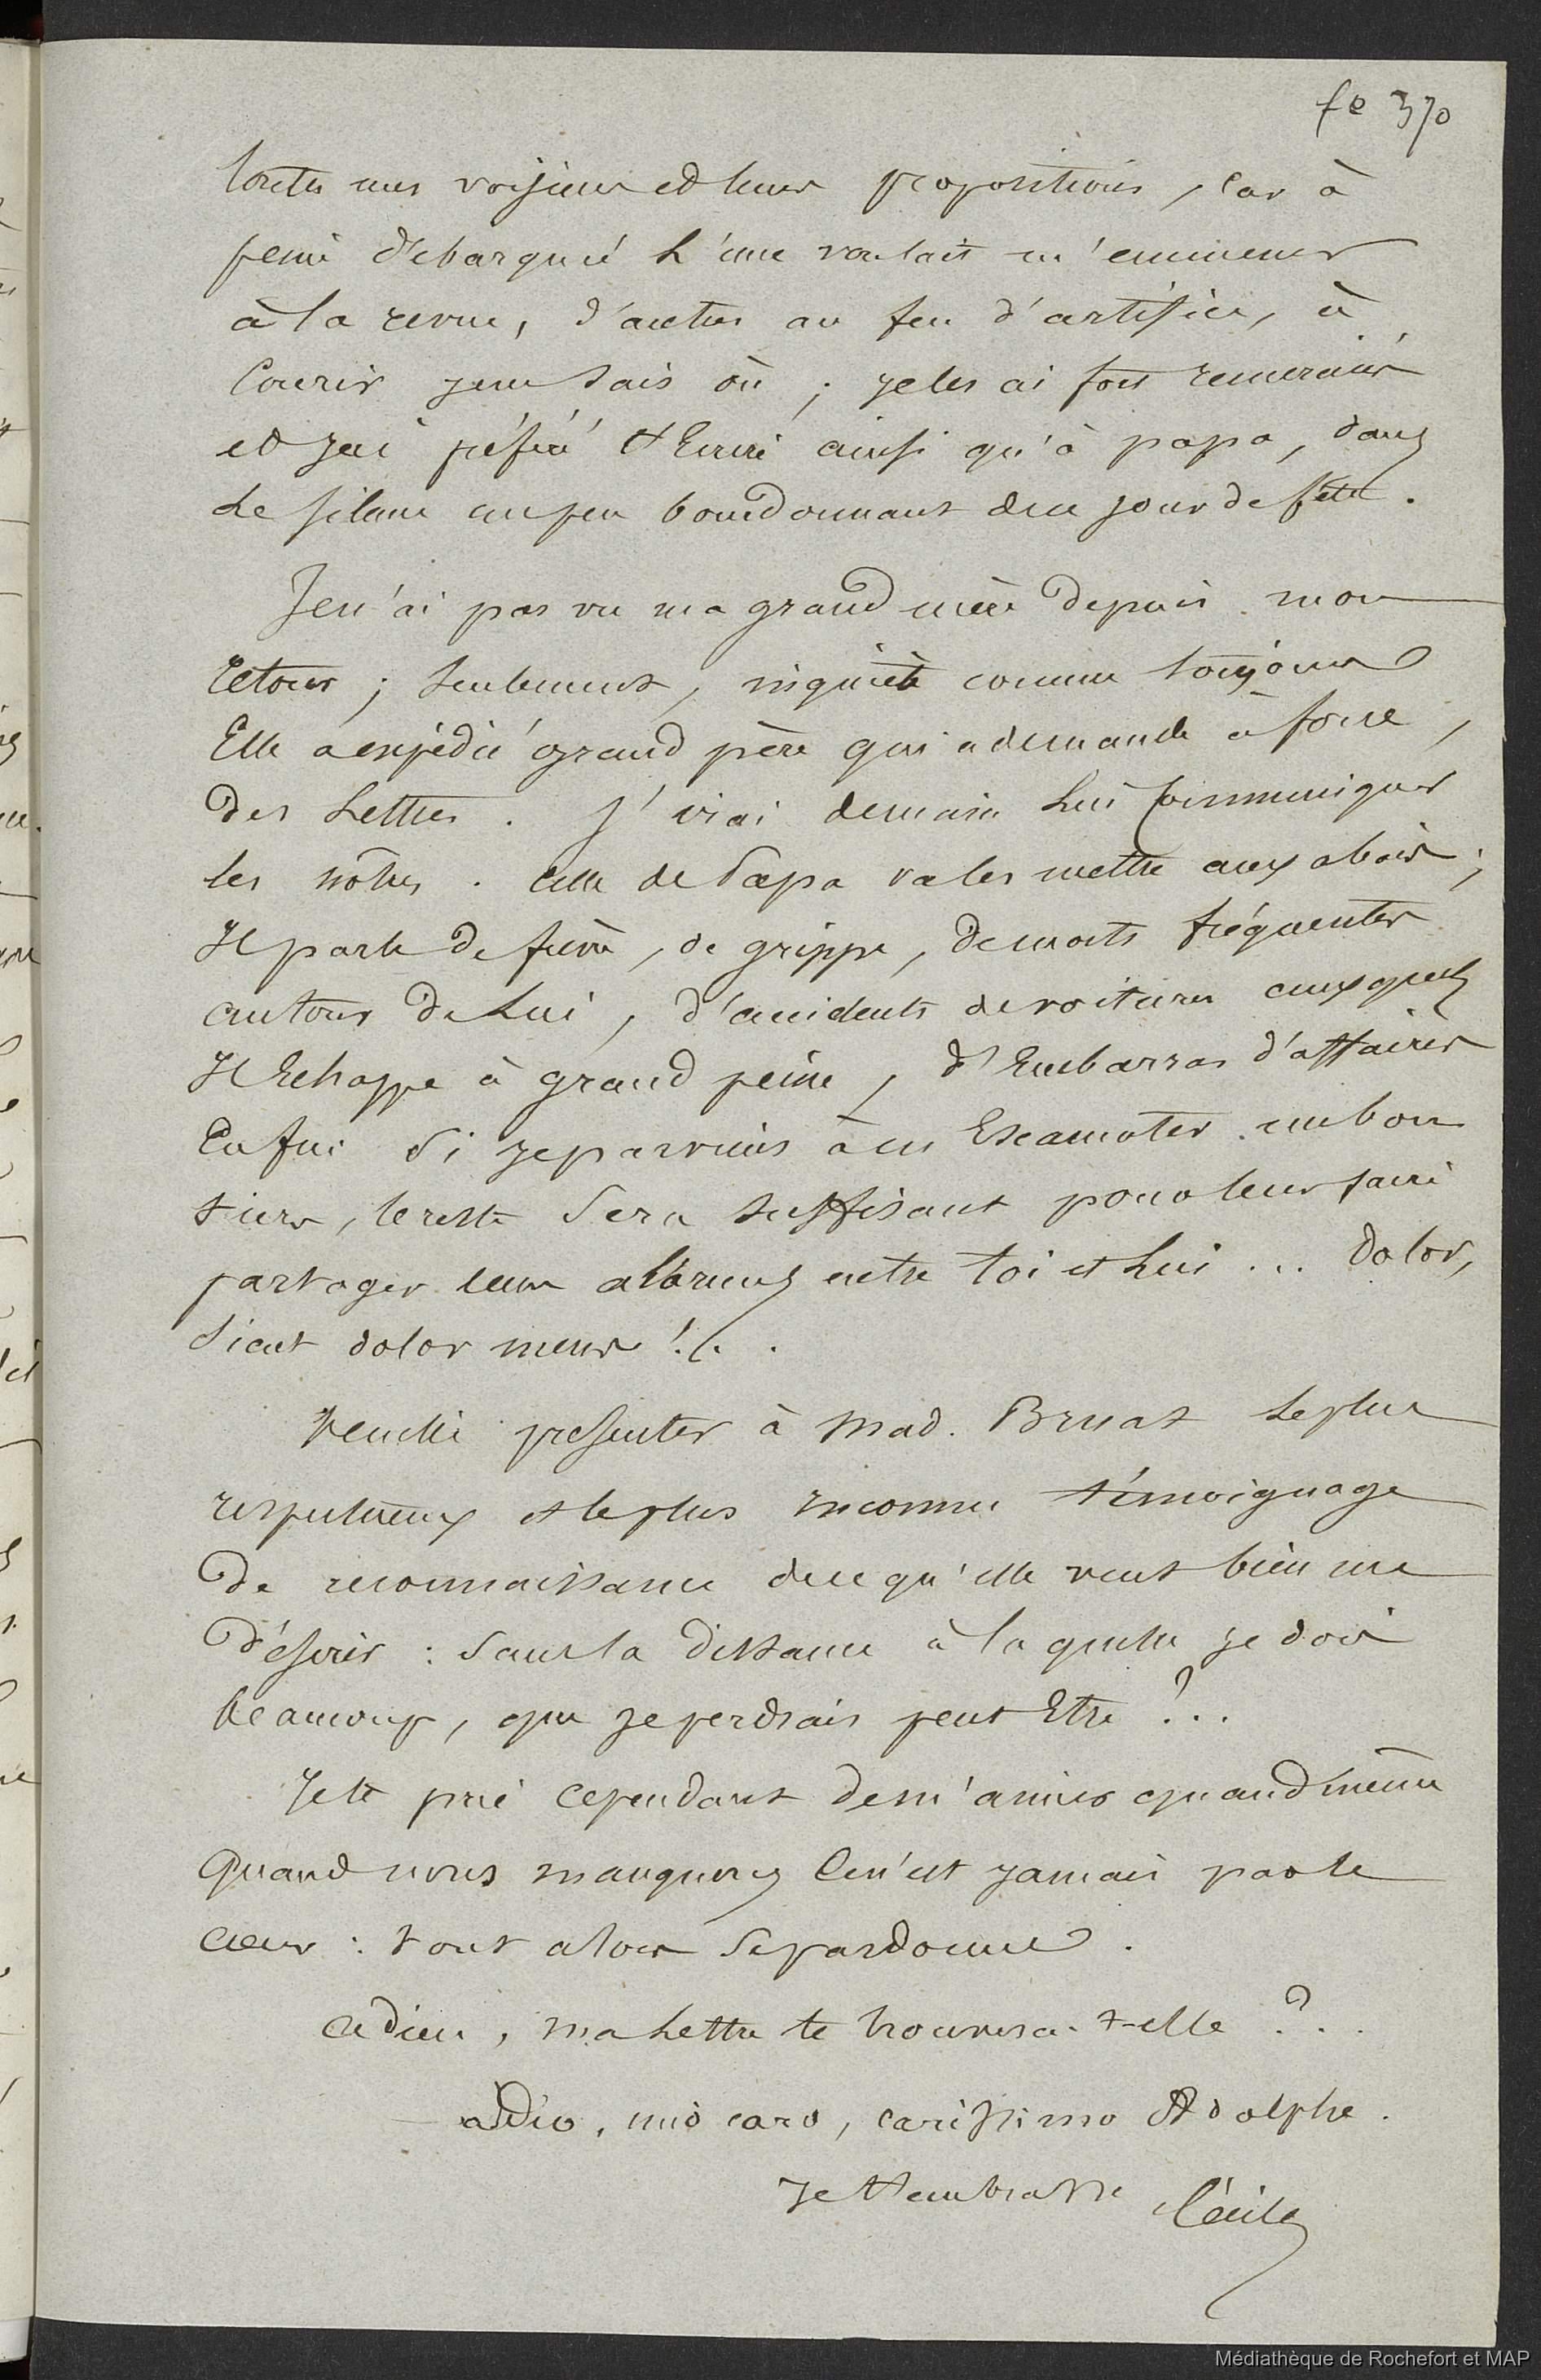 fo 370
toutes mes voisines et leurs propositions, car à
peine débarquée L'une voulait m'emmener
à la revue, d'autres au feu d'artifice, à
Courir je ne sais où ; je les ai fort remerciées
et j'ai préféré t'Ecrire ainsi qu'à papa, dans
Le silence un peu bourdonnant du jour de fête.
Je n'ai pas vu ma grand mère depuis mon
retour ; seulement, inquiète comme toujours
Elle a expédié grand père qui a demandé à force,
des Lettres. J'irai demain Lui communiquer
les nôtres. Celle de Papa va les mettre aux abois ;
Il parle de fièvre, de grippe, de morts fréquentes
autour de Lui, d'accidents de voitures auxquels
Il Echappe à grand peine, d'Embarras d'affaires
Enfin si je parviens à en Escamoter un bon
tiers, le reste sera suffisant pour leur faire
partager leurs alarmes entre toi et Lui ... dolor,
sicut dolor meus !..
Veuille présenter à Mad. Bruat Le plus
respectueux et le plus inconnu témoignage
de reconnaissance de ce qu'elle veut bien me
désirer : sans la distance à laquelle je dois
beaucoup, que je perdrais peut Etre ?..
Je te prie cependant de m'aimer quand même
Quand nous manquons Ce n'est jamais par le
cœur : tout alors se pardonne.
adieu, ma Lettre te trouvera-t-elle ?..
addio, mio caro, carissimo Adolphe.
Je t'embrasse Cécile
Médiathèque de Rochefort et MAP